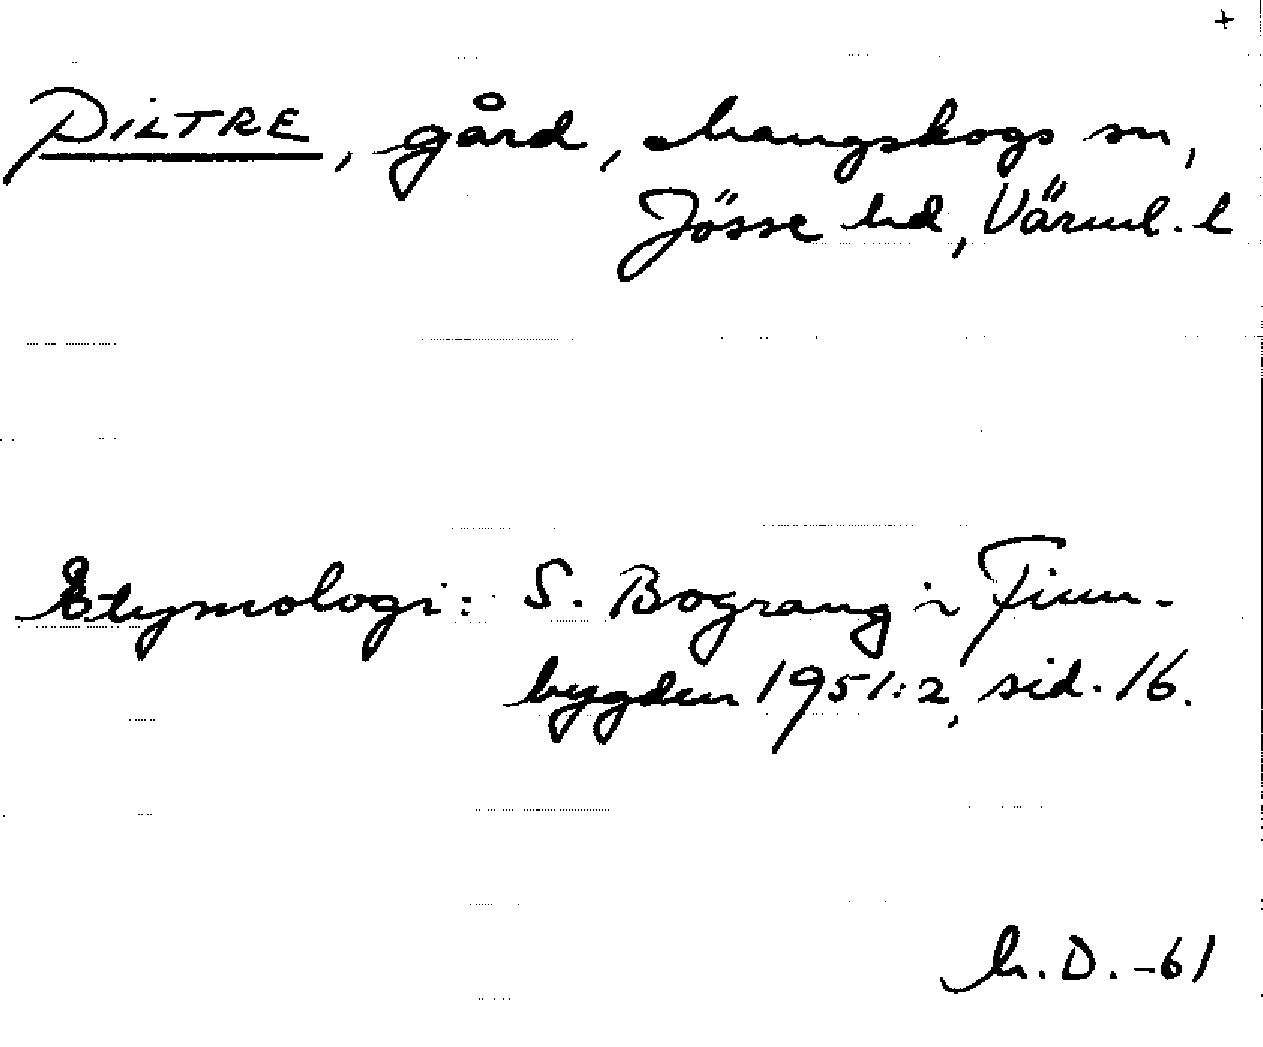 +
PILTRE, gård, Mangskogs sn,
Jösse hd, Värml. l
Etymologi: S. Bograng i Finn-
bygden 1951:2, sid. 16.
h. D. -61